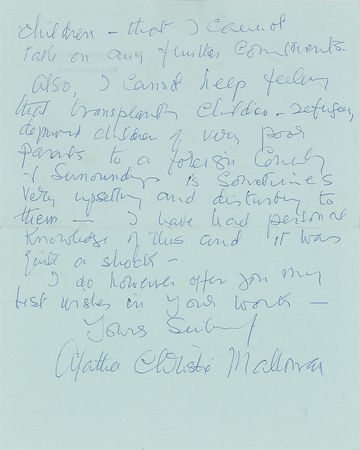 children – that I cannot
take on any further commitments.
Also, I cannot help feeling
that transplanting children – refugees,
deprived children of very poor
parents to a foreign Country
& Surroundings is Sometimes
very upsetting and disturbing to
them — I have had personal
knowledge of this and it was
quite a shock –
I do however offer you my
best wishes in your work –
Yours Sincerely
Agatha Christie Mallowan